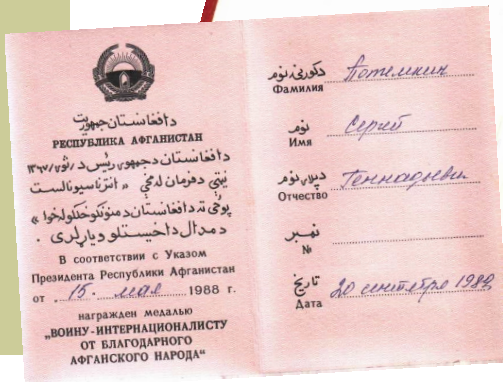 دافغانستان جمهوریت
РЕСПУБЛИКА АФГАНИСТАН
دافغانستان دجمهوری رئیس د
نیټې دفرمان له مخې « انترناسیونالست
پوځي ته دافغانستان د
» دمدال داخیستلو ویاړلری .
В соответствии с Указом
Президента Республики Афганистан
от „15. мая 1988 г.
награжден медалью
„ВОИНУ-ИНТЕРНАЦИОНАЛИСТУ
ОТ БЛАГОДАРНОГО
АФГАНСКОГО НАРОДА“
دکورنۍ نوم Потемкин
Фамилия
نوم Сергей
Имя
دپلار نوم Геннадьевич
Отчество
نمبر
№
تاریخ 20 сентября 1988
Дата